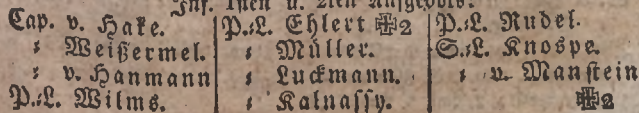 Inf. 1sten u. 2ten Aufgebots.
Cap. v. Hake.
⸗ Weißermel.
⸗ v. Hanmann
P.⸗L. Wilms.
P.⸗L. Ehlert ✠2
⸗ Müller.
⸗ Luckmann.
⸗ Kalnassy.
P.⸗L. Rudel.
S.⸗L. Knospe.
⸗ v. Manstein
✠2